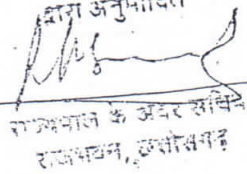 द्वारा अनुमोदित
राज्यपाल के अवर सचिव
राजभवन, छत्तीसगढ़